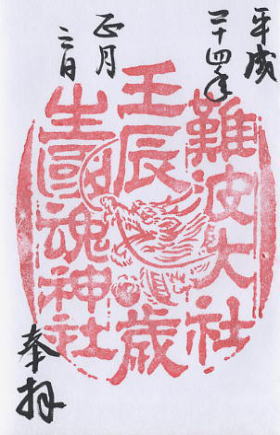 平成
二十四年
正月
二日
難波大社
壬辰歳
生國魂神社
奉拝